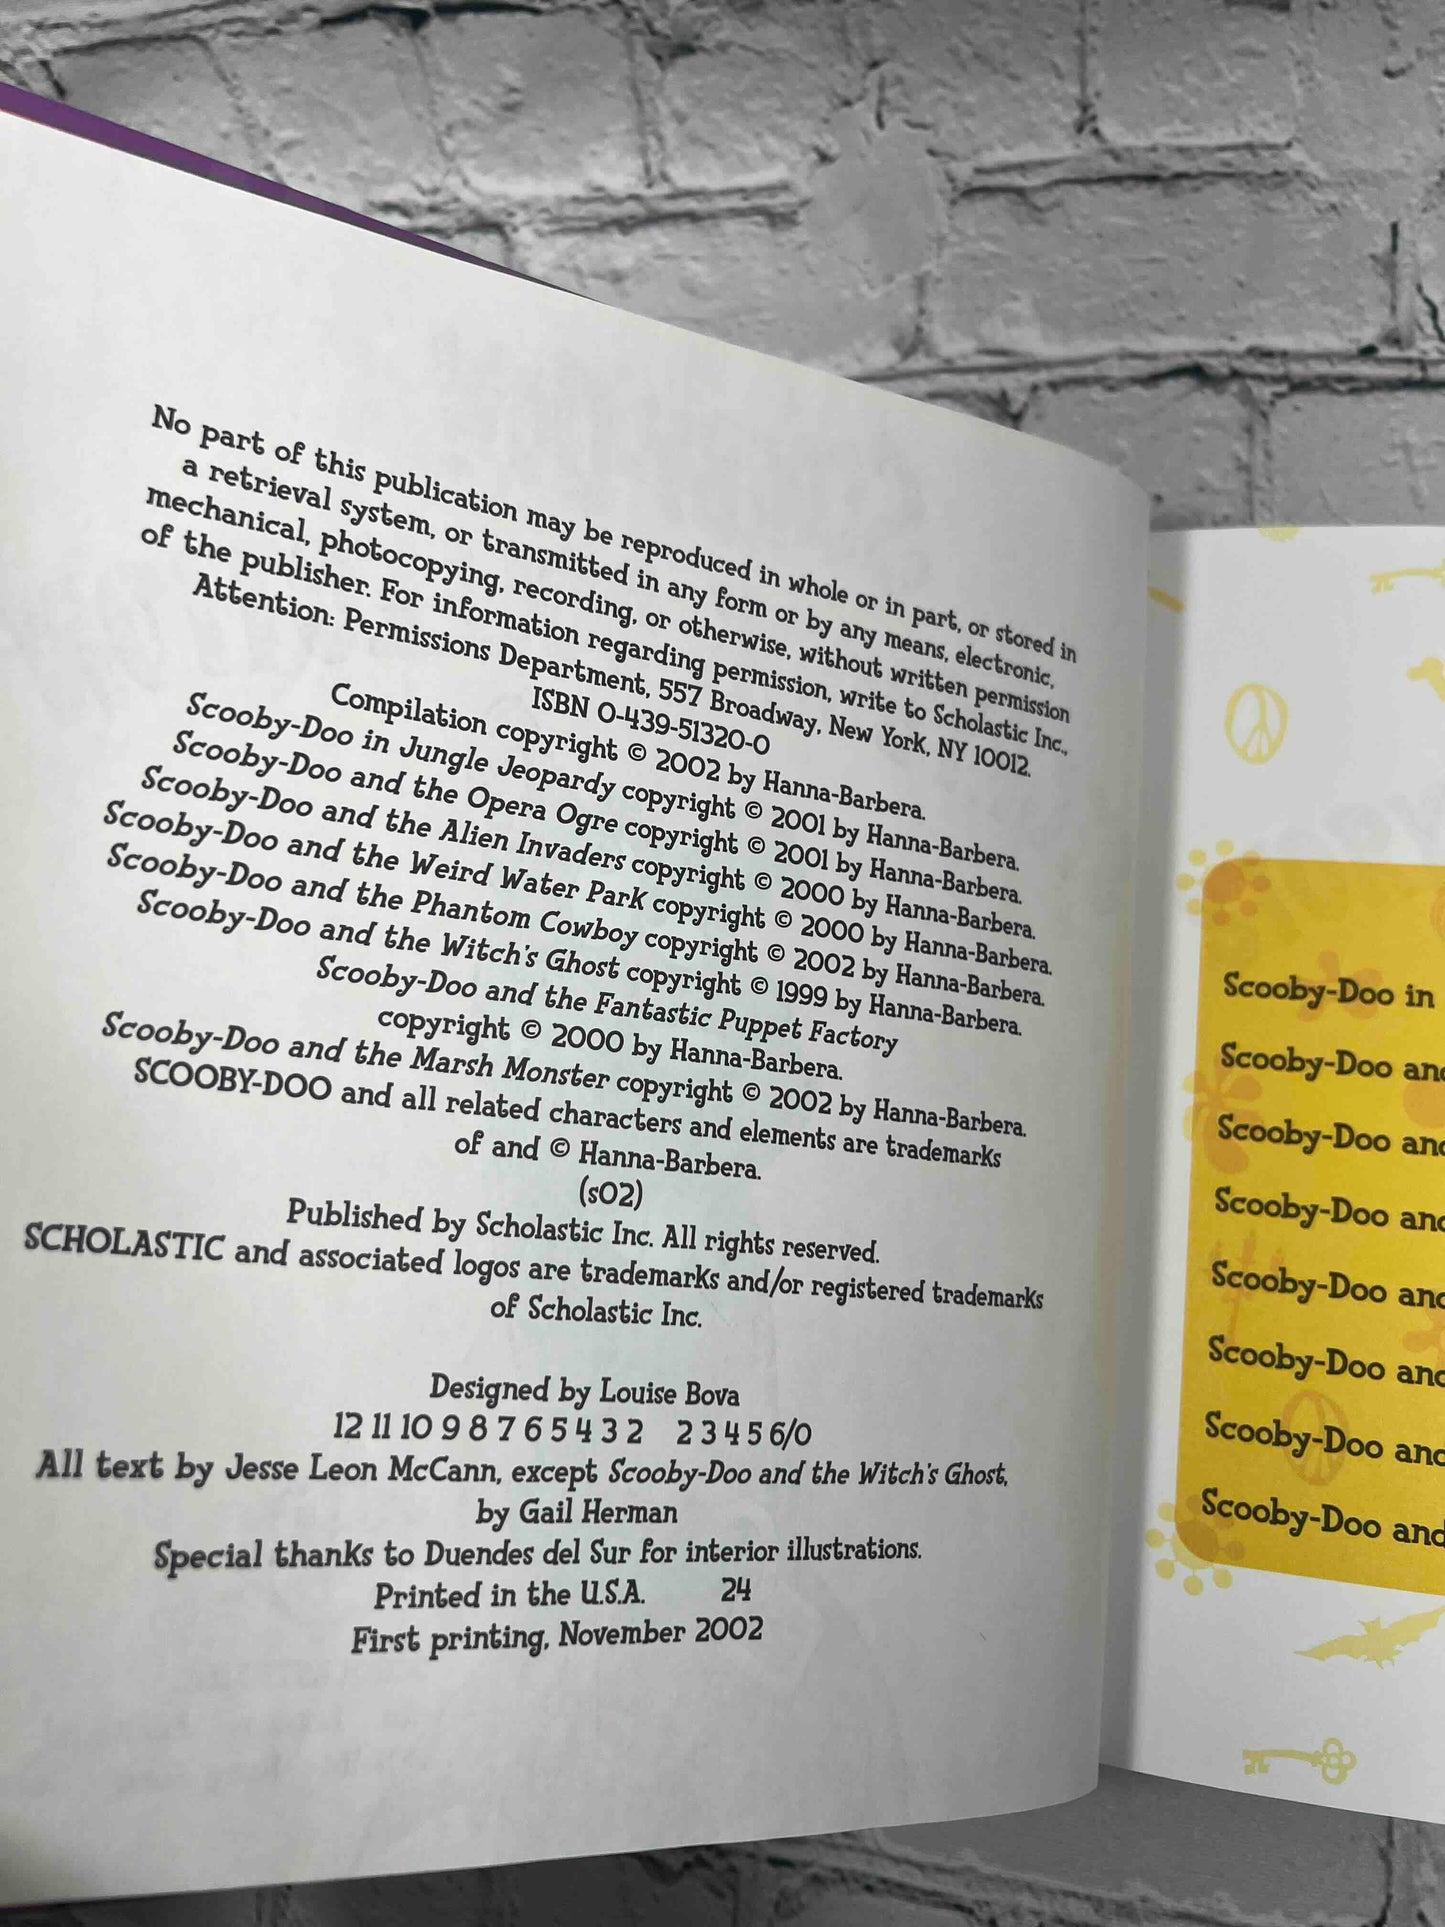 No part of this publication may be reproduced in whole or in part, or stored in
a retrieval system, or transmitted in any form or by any means, electronic,
mechanical, photocopying, recording, or otherwise, without written permission
of the publisher. For information regarding permission, write to Scholastic Inc.,
Attention: Permissions Department, 557 Broadway, New York, NY 10012.
ISBN 0-439-51320-0
Compilation copyright © 2002 by Hanna-Barbera.
Scooby-Doo in Jungle Jeopardy copyright © 2001 by Hanna-Barbera.
Scooby-Doo and the Opera Ogre copyright © 2001 by Hanna-Barbera.
Scooby-Doo and the Alien Invaders copyright © 2000 by Hanna-Barbera.
Scooby-Doo and the Weird Water Park copyright © 2000 by Hanna-Barbera.
Scooby-Doo and the Phantom Cowboy copyright © 2002 by Hanna-Barbera.
Scooby-Doo and the Witch's Ghost copyright © 1999 by Hanna-Barbera.
Scooby-Doo and the Fantastic Puppet Factory
copyright © 2000 by Hanna-Barbera.
Scooby-Doo and the Marsh Monster copyright © 2002 by Hanna-Barbera.
SCOOBY-DOO and all related characters and elements are trademarks
of and © Hanna-Barbera.
(s02)
Published by Scholastic Inc. All rights reserved.
SCHOLASTIC and associated logos are trademarks and/or registered trademarks
of Scholastic Inc.
Designed by Louise Bova
12 11 10 9 8 7 6 5 4 3 2 2 3 4 5 6/0
All text by Jesse Leon McCann, except Scooby-Doo and the Witch's Ghost,
by Gail Herman
Special thanks to Duendes del Sur for interior illustrations.
Printed in the U.S.A. 24
First printing, November 2002
Scooby-Doo in
Scooby-Doo and
Scooby-Doo and
Scooby-Doo and
Scooby-Doo and
Scooby-Doo and
Scooby-Doo and
Scooby-Doo and